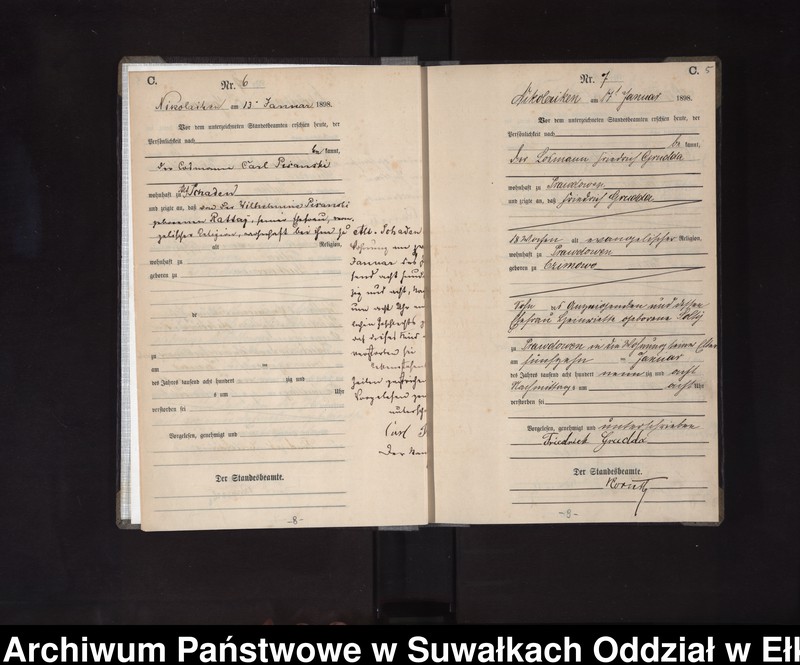 C.
Nr. 6
Nikolaiken am 13. Januar 1898.
Vor dem unterzeichneten Standesbeamten erschien heute, der
Persönlichkeit nach
be kannt,
der Losmann Carl Pisanski
wohnhaft zu Schaden
und zeigte an, daß von der Wilhelmine Pisanski
geborenen Rattay, seiner Ehefrau, evan-
gelischer Religion, wohnhaft bei ihm zu
alt Religion,
wohnhaft zu
geboren zu
de
zu
am ten
des Jahres tausend acht hundert zig und
s um Uhr
verstorben sei
Vorgelesen, genehmigt und
Der Standesbeamte.
-8-
Alt-Schaden
Wohnung am
Januar des
send acht hund
zig und acht, Nach
um acht Uhr ein
lichen Geschlechts
daß dieses Kind
verstorben sei
Zeilen gestrichen
Vorgelesen gen
unterschr
Carl
Der Stan
C. 5
Nr. 7
Nikolaiken am 17. Januar 1898.
Vor dem unterzeichneten Standesbeamten erschien heute, der
Persönlichkeit nach
be kannt,
der Losmann Friedrich Grudda
wohnhaft zu Prawdowen
und zeigte an, daß Friedrich Grudda
Wochen alt evangelischer Religion,
wohnhaft zu Prawdowen
geboren zu Czimowo
Sohn des Anzeigenden und dessen
Ehefrau Henriette geborene
zu Prawdowen in der Wohnung seiner Eltern
am fünfzehn ten Januar
des Jahres tausend acht hundert neun zig und acht
Nachmittags um acht Uhr
verstorben sei
Vorgelesen, genehmigt und unterschrieben
Friedrich Grudda
Der Standesbeamte.
-9-
Archiwum Państwowe w Suwałkach Oddział w Ełk